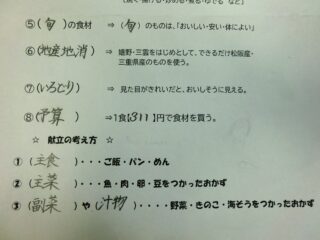 ⑤(旬)の食材 ⇒ (旬)のものは、「おいしい・安い・体によい」
⑥(地産地消) ⇒ 嬉野・三雲をはじめとして、できるだけ松阪産・
三重県産のものを使う。
⑦(いろどり) ⇒ 見た目がきれいだと、おいしそうに見える。
⑧(予算) ⇒1食[311]円で食材を買う。
☆ 献立の考え方 ☆
①(主食)・・・ご飯・パン・めん
②(主菜)・・・魚・肉・卵・豆をつかったおかず
③(副菜)や(汁物)・・・・野菜・きのこ・海そうをつかったおかず